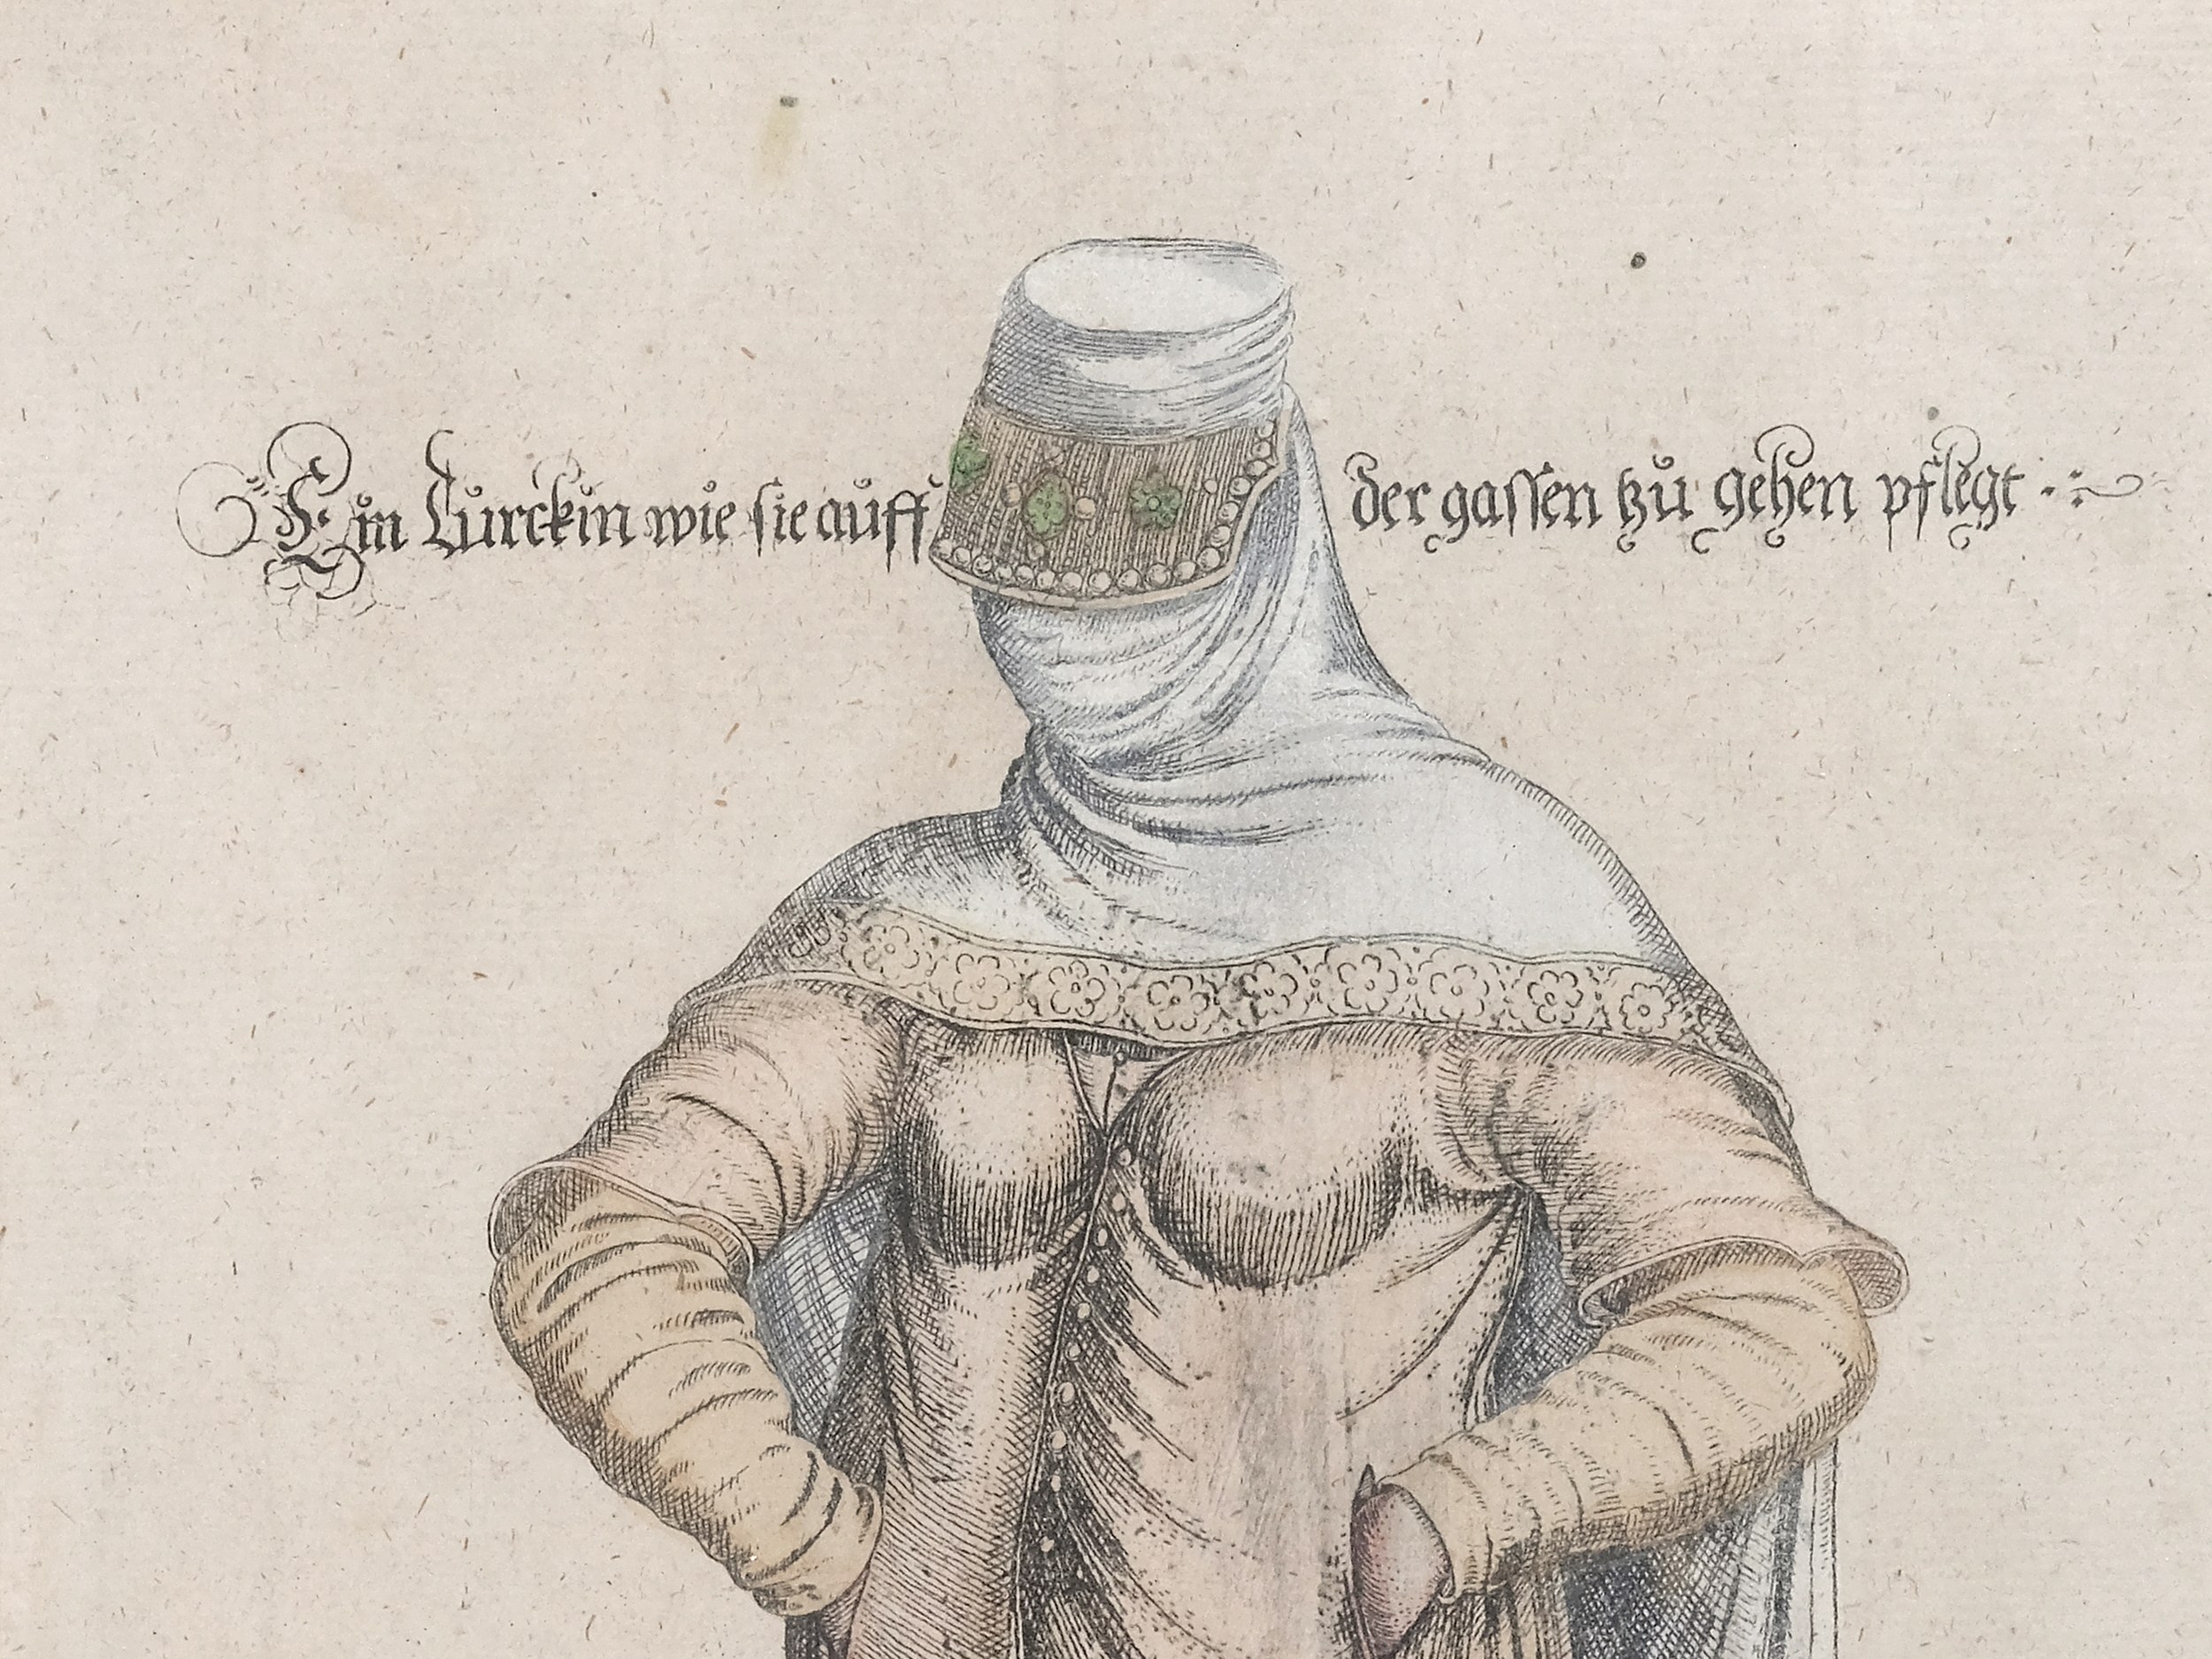 Ein Türckin wie sie auff der gassen tzů gehen pflegt